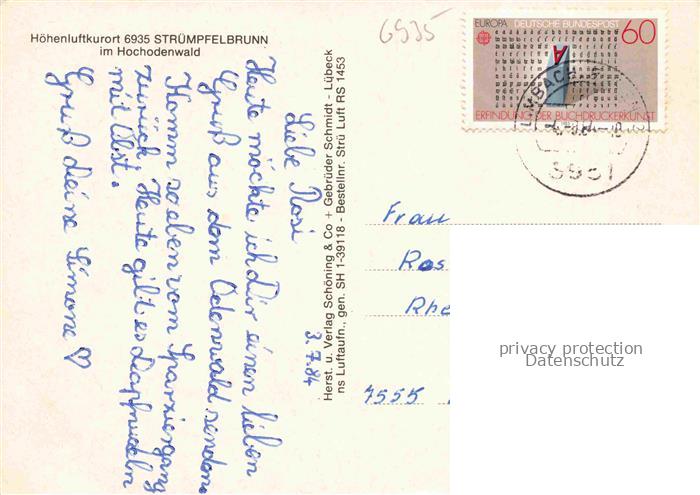 Höhenluftkurort 6935 STRÜMPFELBRUNN
im Hochodenwald
6935
EUROPA DEUTSCHE BUNDESPOST 60
ERFINDUNG DER BUCHDRUCKERKUNST
6951
3.7.84
Liebe Rosi
Heute möchte ich Dir einen lieben
Gruß aus dem Odenwald senden.
Komm soeben vom Sparziergang
zurück, Heute gibt es Dampfnudeln
mit Obst.
Gruß Deine Simone ♡
Herst. u. Verlag Schöning & Co + Gebrüder Schmidt - Lübeck
ns Luftaufn., gen. SH 1-39118 - Bestellnr. Strü Luft RS 1453
Frau
Ros
Rhe
7555
privacy protection
Datenschutz